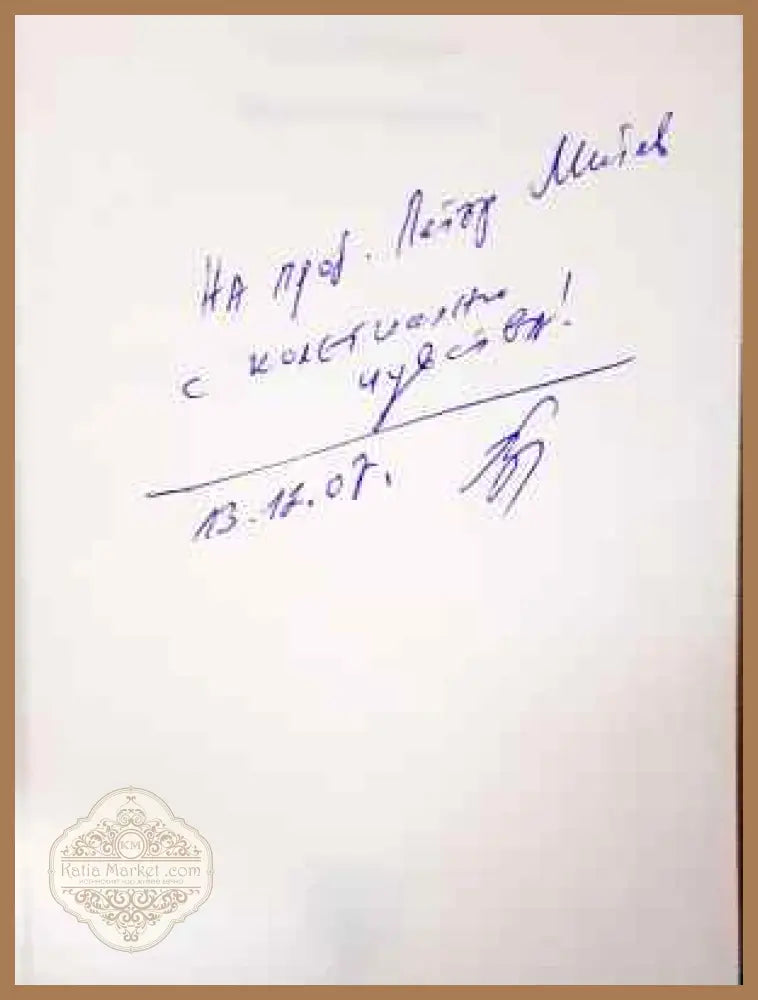 На проф. Петър Митев
с колегиални
чувства!
13.12.07.
KM
Katia Market .com